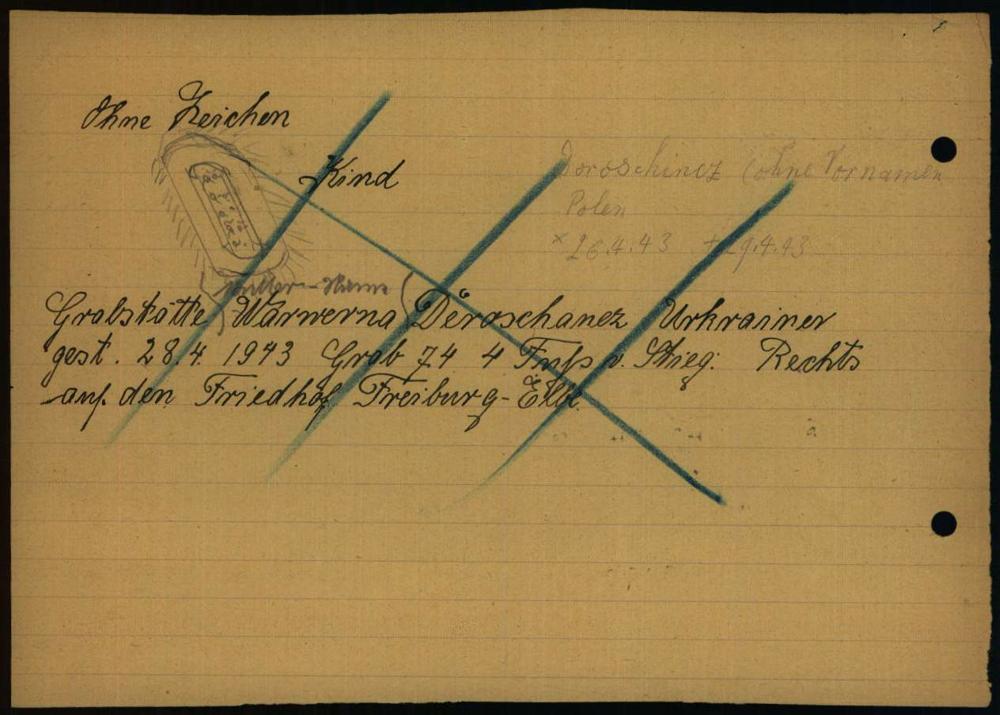 Ohne Zeichen
Kind
Doroschincz (ohne Vornamen
Polen
* 26.4.43 + 29.4.43
Mutter-Name
Grabstätte (Warwerna) Deroschanez Urkrainer
gest. 28.4. 1943 Grab 74 4 Fuss v. Stieg. Rechts
auf den Friedhof Freiburg-Elbe.